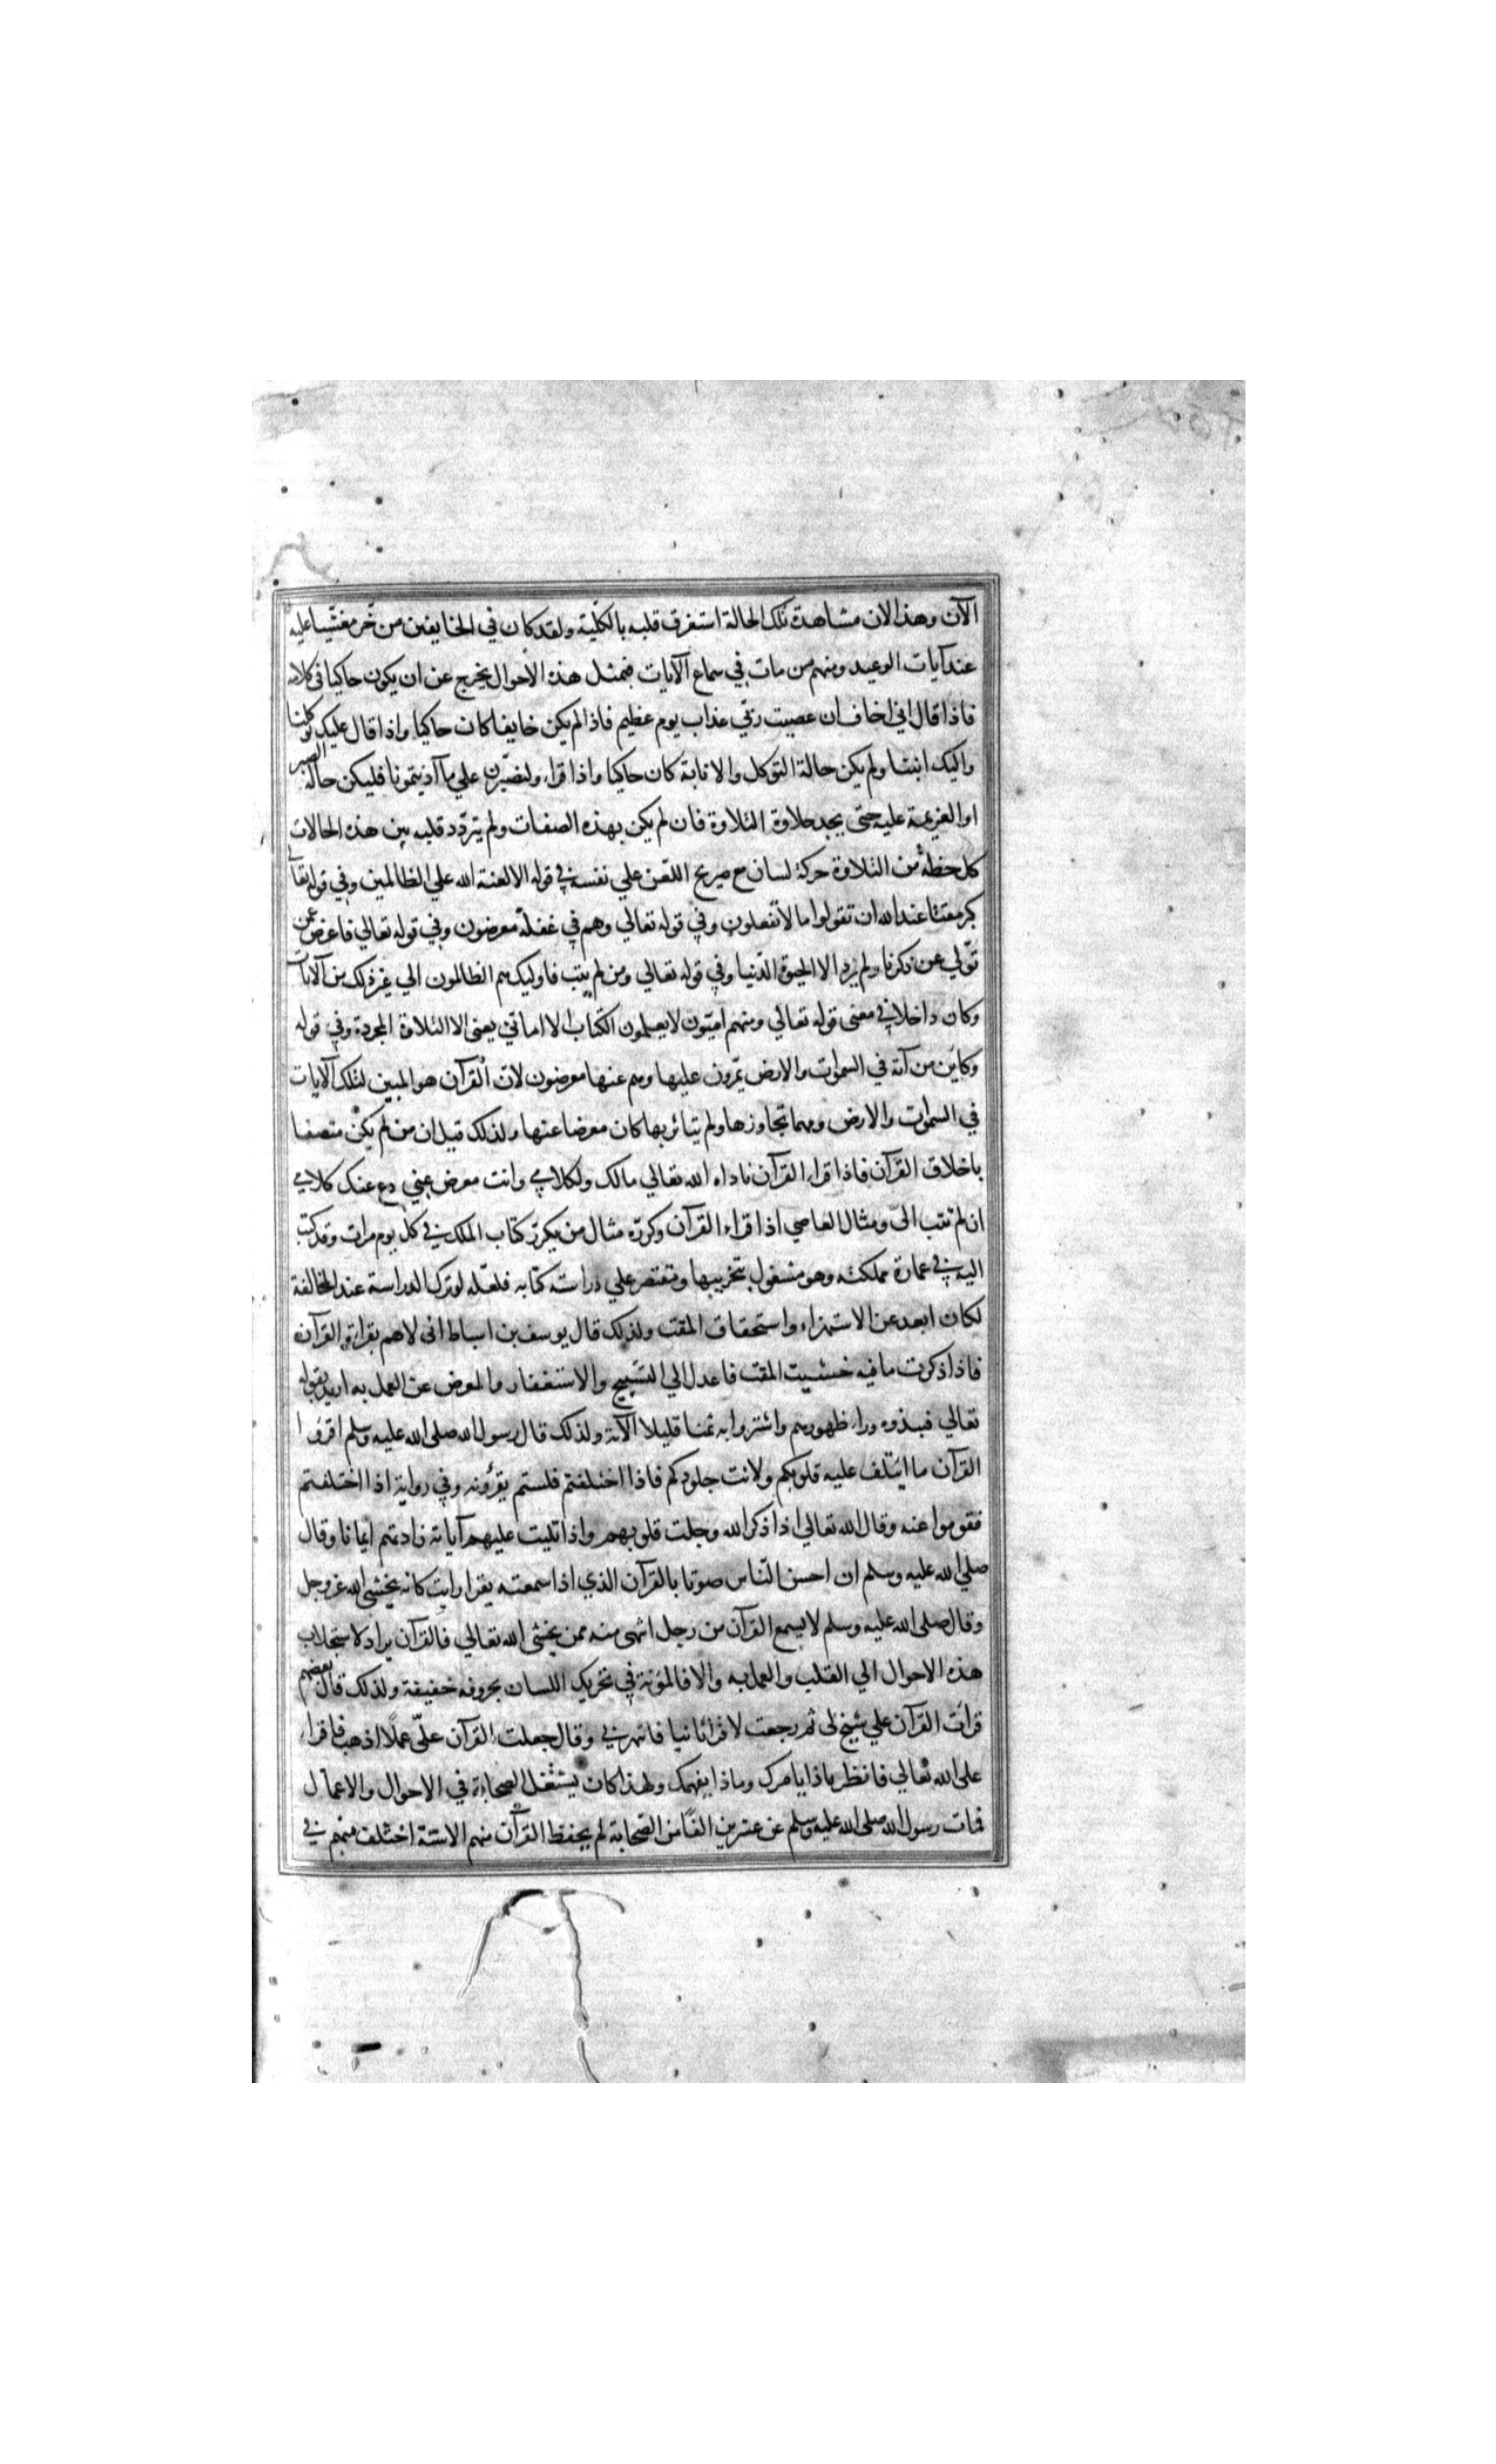 الآن وهذا الان مشاهدة تلك الحالة استغرق قلبه بالكلّية ولقد كان في الخايفين من خّر مغشّيا عليه
عند آيات الوعيد ومنهم من مات في سماع الآيات فمثل هذه الاحوال يخرج عن ان يكون حاكيا في كلامه
فاذا قال اني اخاف ان عصيت ربّي عذاب يوم عظيم فاذا لم يكن خايفا كان حاكيا واذا قال عليك توكلنا
واليك انبنا ولم يكن حالة التوكل والانابة كان حاكيا واذا قراء ولنصبّرن علي ما آذيتمونا فليكن حاله الصبر
او العزيمة عليه حتى يجد حلاوة التلاوة فان لم يكن بهذه الصفات ولم يتردّد قلبه بين هذه الحالات
كل حظه من التلاوة حركة لسان مع صريح اللعن علي نفسه في قوله الا لعنة الله علي الظالمين وفي قوله تعالي
كبر مقتا عند الله ان تقولوا ما لا تفعلون وفي قوله تعالي وهم في غفلة معرضون وفي قوله تعالي فاعرض عن
تولّي عن ذكرنا ولم يرد الا الحيوة الدّنيا وفي قوله تعالي ومن لم يتب فاوليك هم الظالمون الي غير ذلك من الآيات
وكان داخلا في معنى قوله تعالي ومنهم اميّون لا يعلمون الكتاب الا امانّي يعنى الا التلاوة المجردة وفي قوله
وكايّن من آية في السموات والارض يمّرون عليها وهم عنها معرضون لان القرآن هو المبين لتلك الآيات
في السموات والارض ومهما تجاوزها ولم يتاثر بها كان معرضا عنها ولذلك قيل ان من لم يكن متصفا
باخلاق القرآن فاذا قراء القرآن ناداه الله تعالي مالك ولكلامي وانت معرض عني دع عنك كلامي
ان لم تتب الىّ ومثال العاصي اذا قراء القرآن وكرّره مثال من يكرّر كتاب الملك في كل يوم مرات وقد كتب
اليه في عمارة مملكته وهو مشغول بتخريبها ومقتصر علي دراسة كتابه فلعلّه لو ترك الدراسة عند المخالفة
لكان ابعد عن الاستهزاء واستحقاق المقت ولذلك قال يوسف بن اسباط انى لاهم بقراءة القرآن
فاذا ذكرت ما فيه خشيت المقت فاعدل الي التسّبيح والاستغفار والمعرض عن العمل به اريد بقوله
تعالي فنبذوه وراء ظهورهم واشتروا به ثمنا قليلا الآية ولذلك قال رسول الله صلى الله عليه وسلم اقرؤا
القرآن ما ائتلف عليه قلوبكم ولانت جلودكم فاذا اختلفتم فلستم تقرؤنه وفي رواية اذا اختلفتم
فقوموا عنه وقال الله تعالي اذا ذكر الله وجلت قلوبهم واذا تليت عليهم آياته زادتهم ايمانا وقال
صلي الله عليه وسلم ان احسن النّاس صوتا بالقرآن الذي اذا سمعته يقرا رايت كانه يخشى الله عزوجل
وقال صلى الله عليه وسلم لا يسمع القرآن من رجل اشهى منه ممن يخشى الله تعالي فالقرآن يراد لاستجلاب
هذه الاحوال الي القلب والعمل به والا فالمؤنة في تحريك اللسان بحروفه خفيفة ولذلك قال بعضهم
قرأت القرآن علي شيخ لى ثم رجعت لاقرا ثانيا فانتهرني وقال جعلت القرآن علىّ عملا اذهب فاقراء
على الله تعالي فانظر ماذا يامرك وماذا يفهمك ولهذا كان يشتغل الصحابة في الاحوال والاعمال
فمات رسول الله صلى الله عليه وسلم عن عشرين الفا من الصّحابة لم يحفظ القرآن منهم الا ستة اختلف منهم في